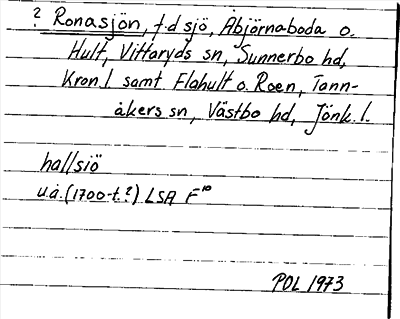 ? Ronasjön, f.d sjö, Åbjörnaboda o.
Hult, Vittaryds sn, Sunnerbo hd,
Kron.l samt Flahult o. Roen, Tann-
åkers sn, Västbo hd, Jönk.l.
hallsiö
u.å. (1700-t.?) LSA F¹⁰
POL 1973